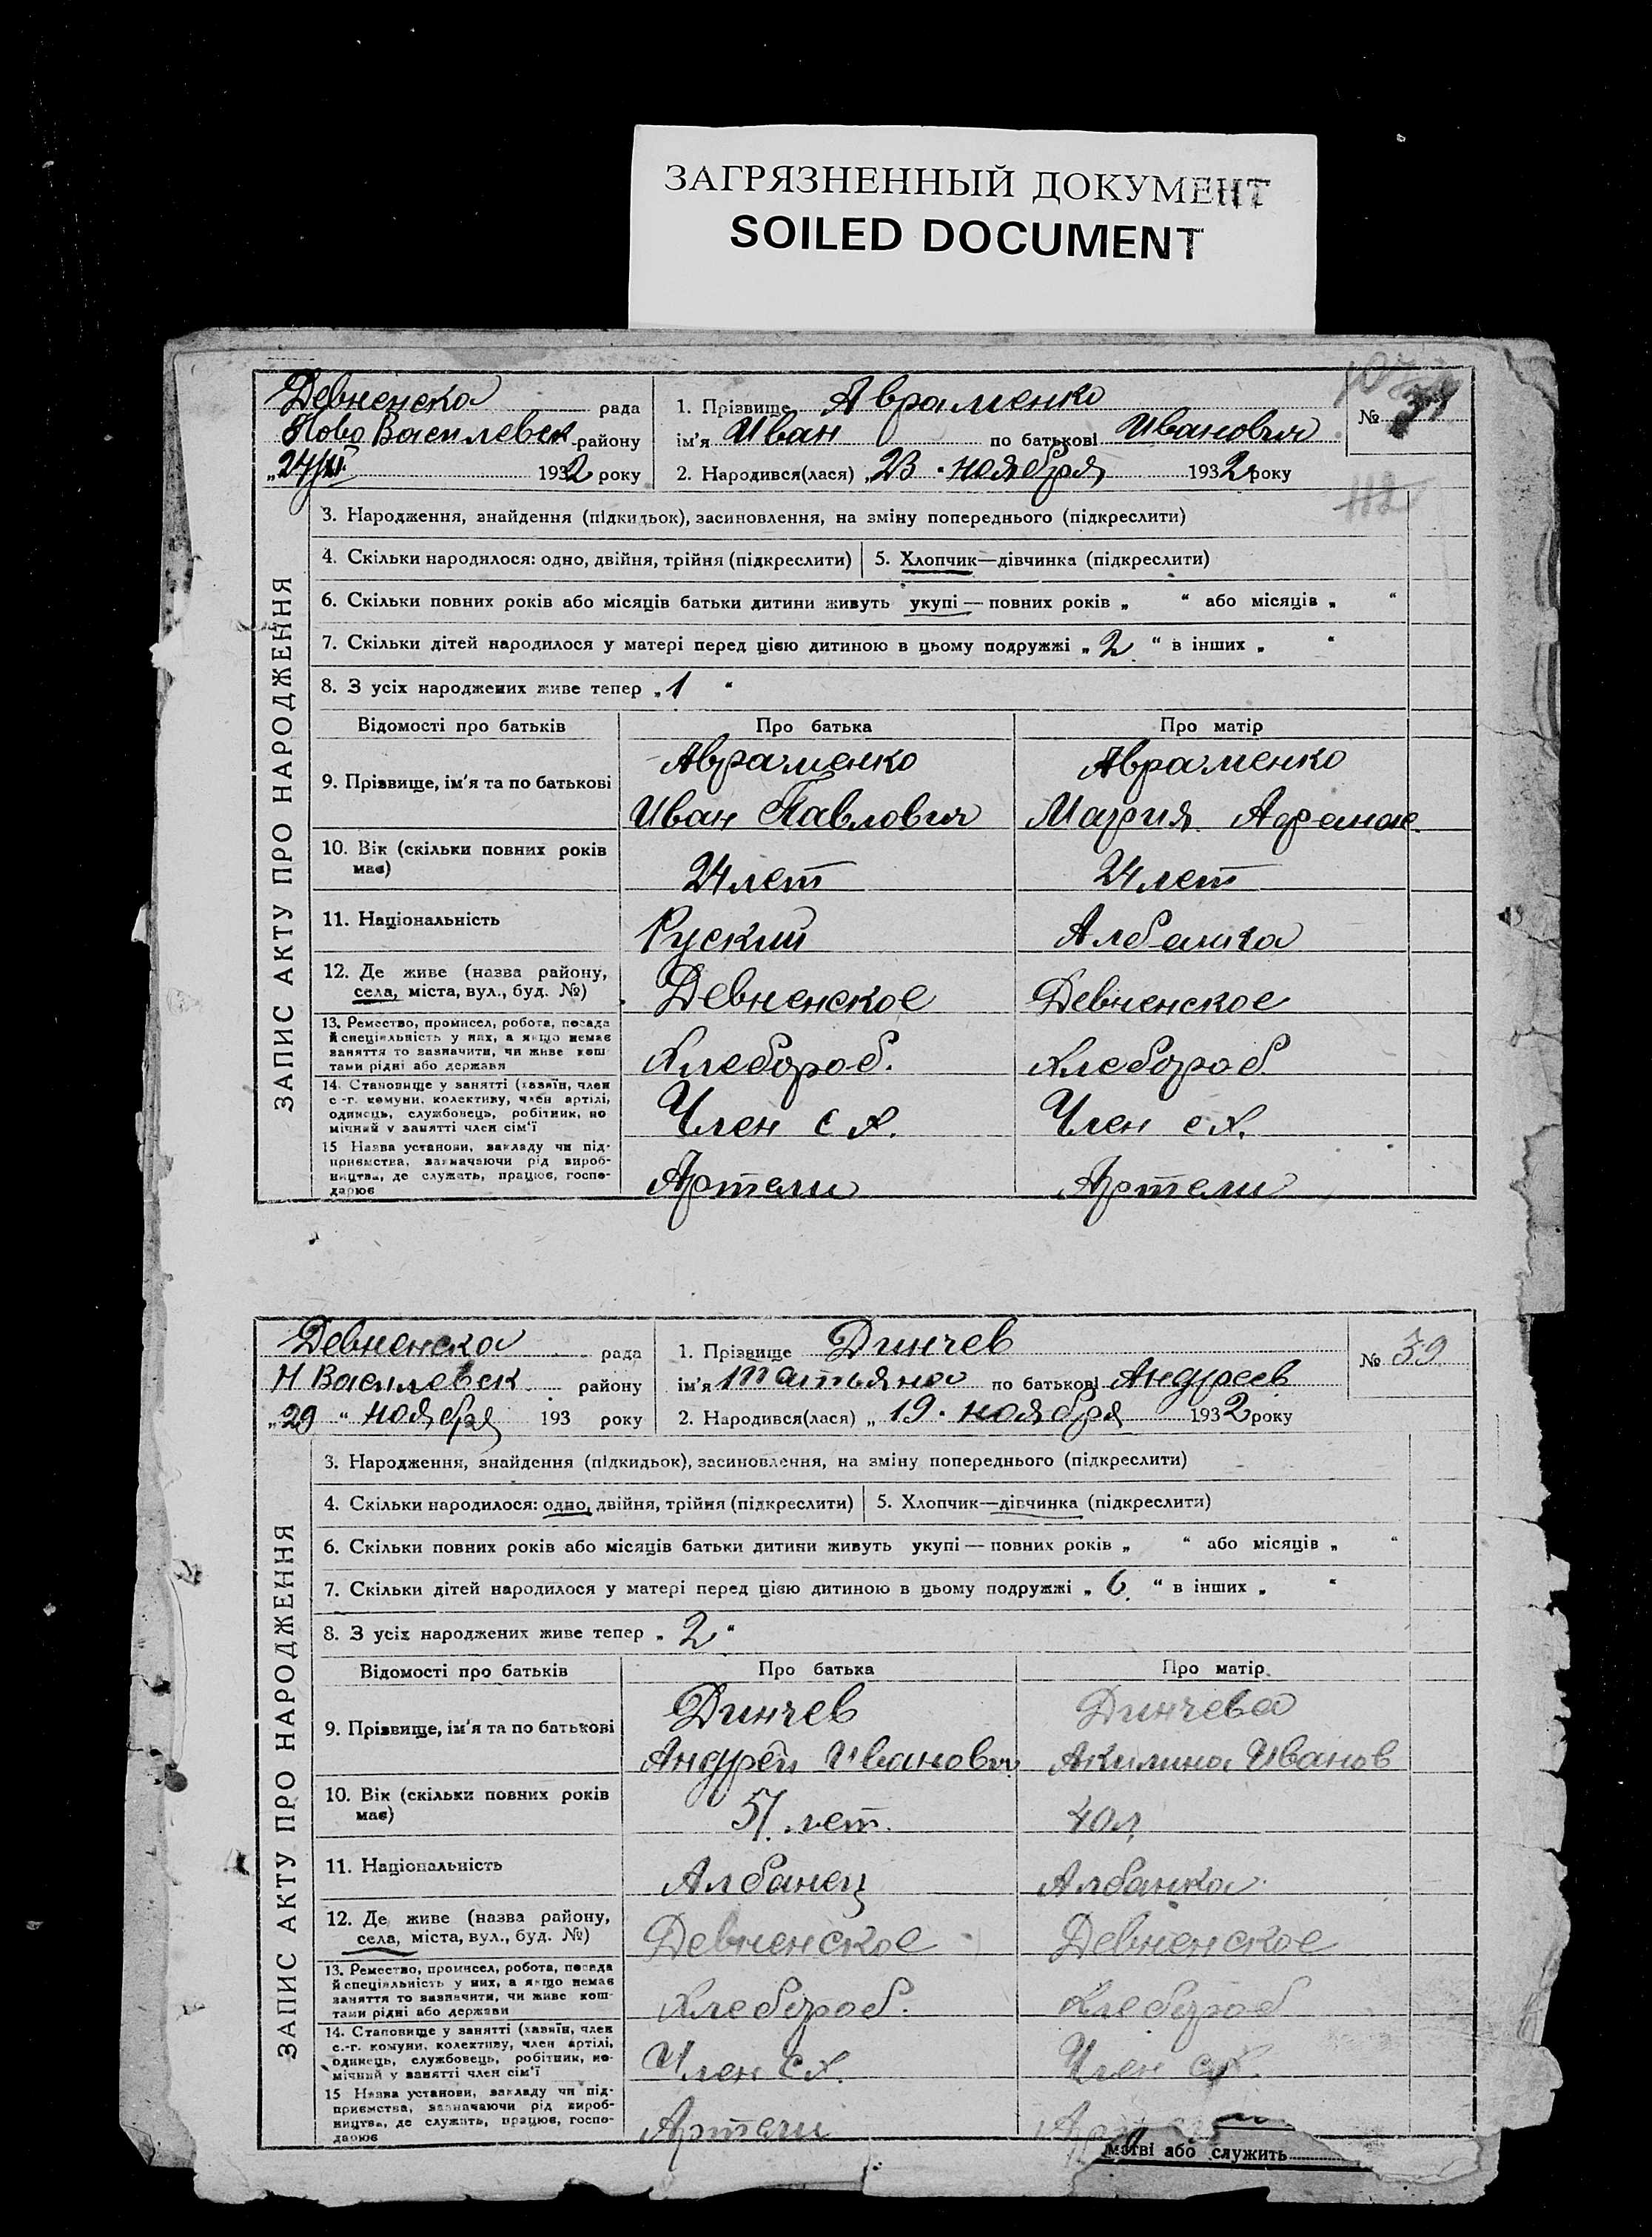 ЗАГРЯЗНЕННЫЙ ДОКУМЕНТ
SOILED DOCUMENT
Девненска рада
Ново Василевск району
„24/XI 1932 року
1. Прізвище Авраменко
ім'я Иван по батькові Иванович
2. Народився(лася) „23 ноября 1932 року
№
112
ЗАПИС АКТУ ПРО НАРОДЖЕННЯ
3. Народження, знайдення (підкидьок), засиновлення, на зміну попереднього (підкреслити)
4. Скільки народилося: одно, двійня, трійня (підкреслити) 5. Хлопчик—дівчинка (підкреслити)
6. Скільки повних років або місяців батьки дитини живуть укупі — повних років „ “ або місяців „ “
7. Скільки дітей народилося у матері перед цією дитиною в цьому подружжі „ 2 “ в інших „ “
8. З усіх народжених живе тепер „ 1 “
Відомості про батьків Про батька Про матір
9. Прізвище, ім'я та по батькові
Авраменко Авраменко
Иван Павлович Мария Афанас
10. Вік (скільки повних років має) 24 лет 24 лет
11. Національність Руский Албанка
12. Де живе (назва району,
села, міста, вул., буд. №) Девненское Девненское
13. Ремество, промисел, робота, посада
й спеціяльність у них, а якщо немає
заняття то зазначити, чи живе кош-
тами рідні або держави Хлебороб. Хлебороб
14. Становище у занятті (хазяїн, член
с.-г. комуни, колективу, член артілі,
одинець, службовець, робітник, по-
мічний у занятті член сім'ї Член с х. Член с х.
15 Назва установи, закладу чи під-
приємства, зазначаючи рід вироб-
ництва, де служать, працює, госпо-
дарює Артели Артели
Девненска рада
Н Василевск району
„29 “ ноября 193 року
1. Прізвище Динчев
ім'я Татьяна по батькові Андреев
2. Народився(лася) „ 19. ноября 1932 року
№ 39
ЗАПИС АКТУ ПРО НАРОДЖЕННЯ
3. Народження, знайдення (підкидьок), засиновлення, на зміну попереднього (підкреслити)
4. Скільки народилося: одно, двійня, трійня (підкреслити) 5. Хлопчик—дівчинка (підкреслити)
6. Скільки повних років або місяців батьки дитини живуть укупі — повних років „ “ або місяців „ “
7. Скільки дітей народилося у матері перед цією дитиною в цьому подружжі „ 6 “ в інших „ “
8. З усіх народжених живе тепер „ 2 “
Відомості про батьків Про батька Про матір
9. Прізвище, ім'я та по батькові
Динчев Динчева
Андрей Иванович Акилина Иванов
10. Вік (скільки повних років має) 51 лет. 40 л
11. Національність Албанец Албанка
12. Де живе (назва району,
села, міста, вул., буд. №) Девненское Девненское
13. Ремество, промисел, робота, посада
й спеціяльність у них, а якщо немає
заняття то зазначити, чи живе кош-
тами рідні або держави Хлебороб. Хлебороб
14. Становище у занятті (хазяїн, член
с.-г. комуни, колективу, член артілі,
одинець, службовець, робітник, по-
мічний у занятті член сім'ї Член с х. Член с х.
15 Назва установи, закладу чи під-
приємства, зазначаючи рід вироб-
ництва, де служать, працює, госпо-
дарює Артели
або служить